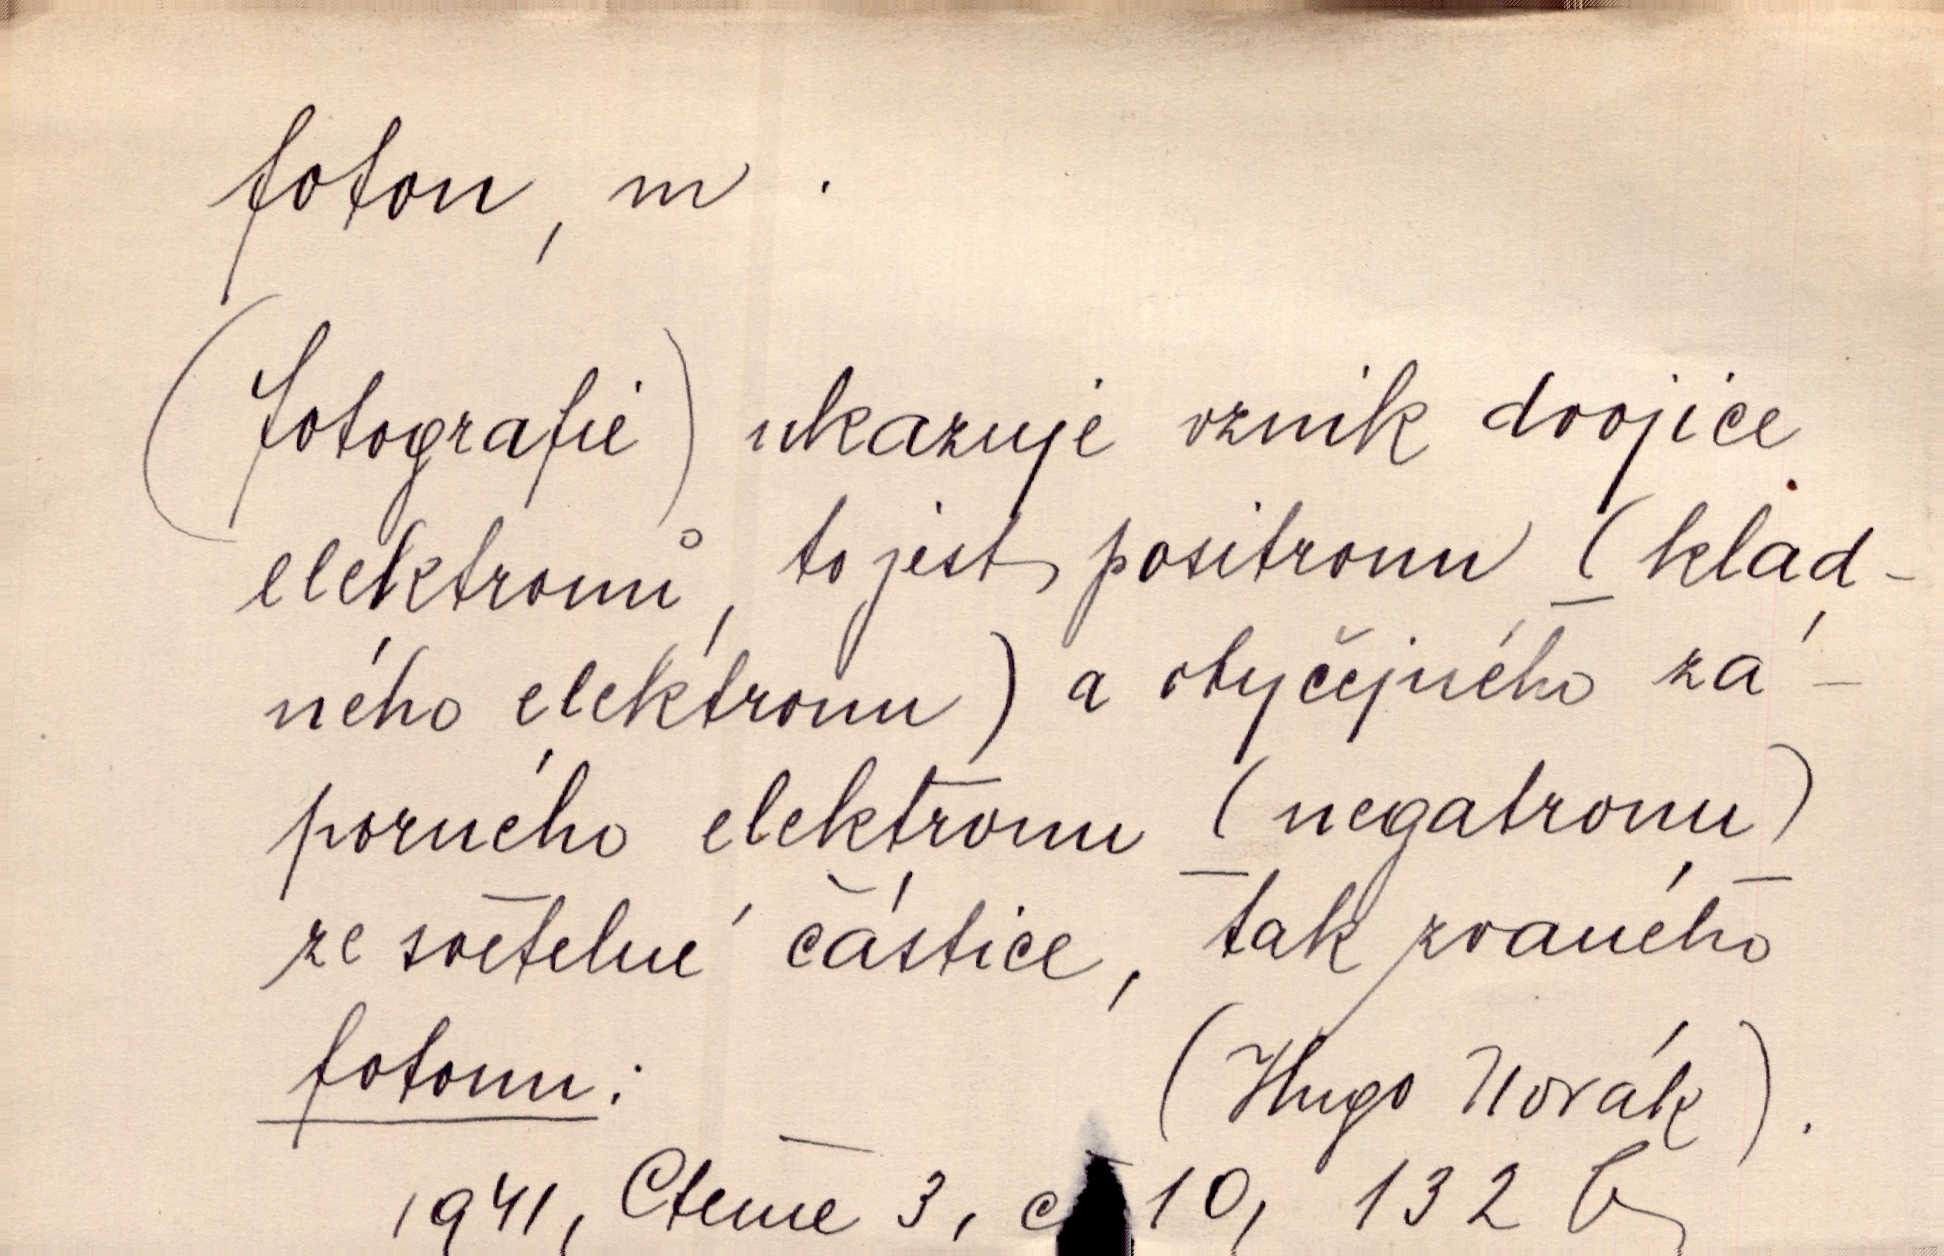 foton, m.
(fotografie) ukazuje vznik dvojice
elektronů, to jest positronu (klad-
ného elektronu) a obyčejného zá-
porného elektronu (negatronu)
ze světelné částice, tak zvaného
fotonu: (Hugo Novák).
1941, Čteme 3, č 10, 132 b